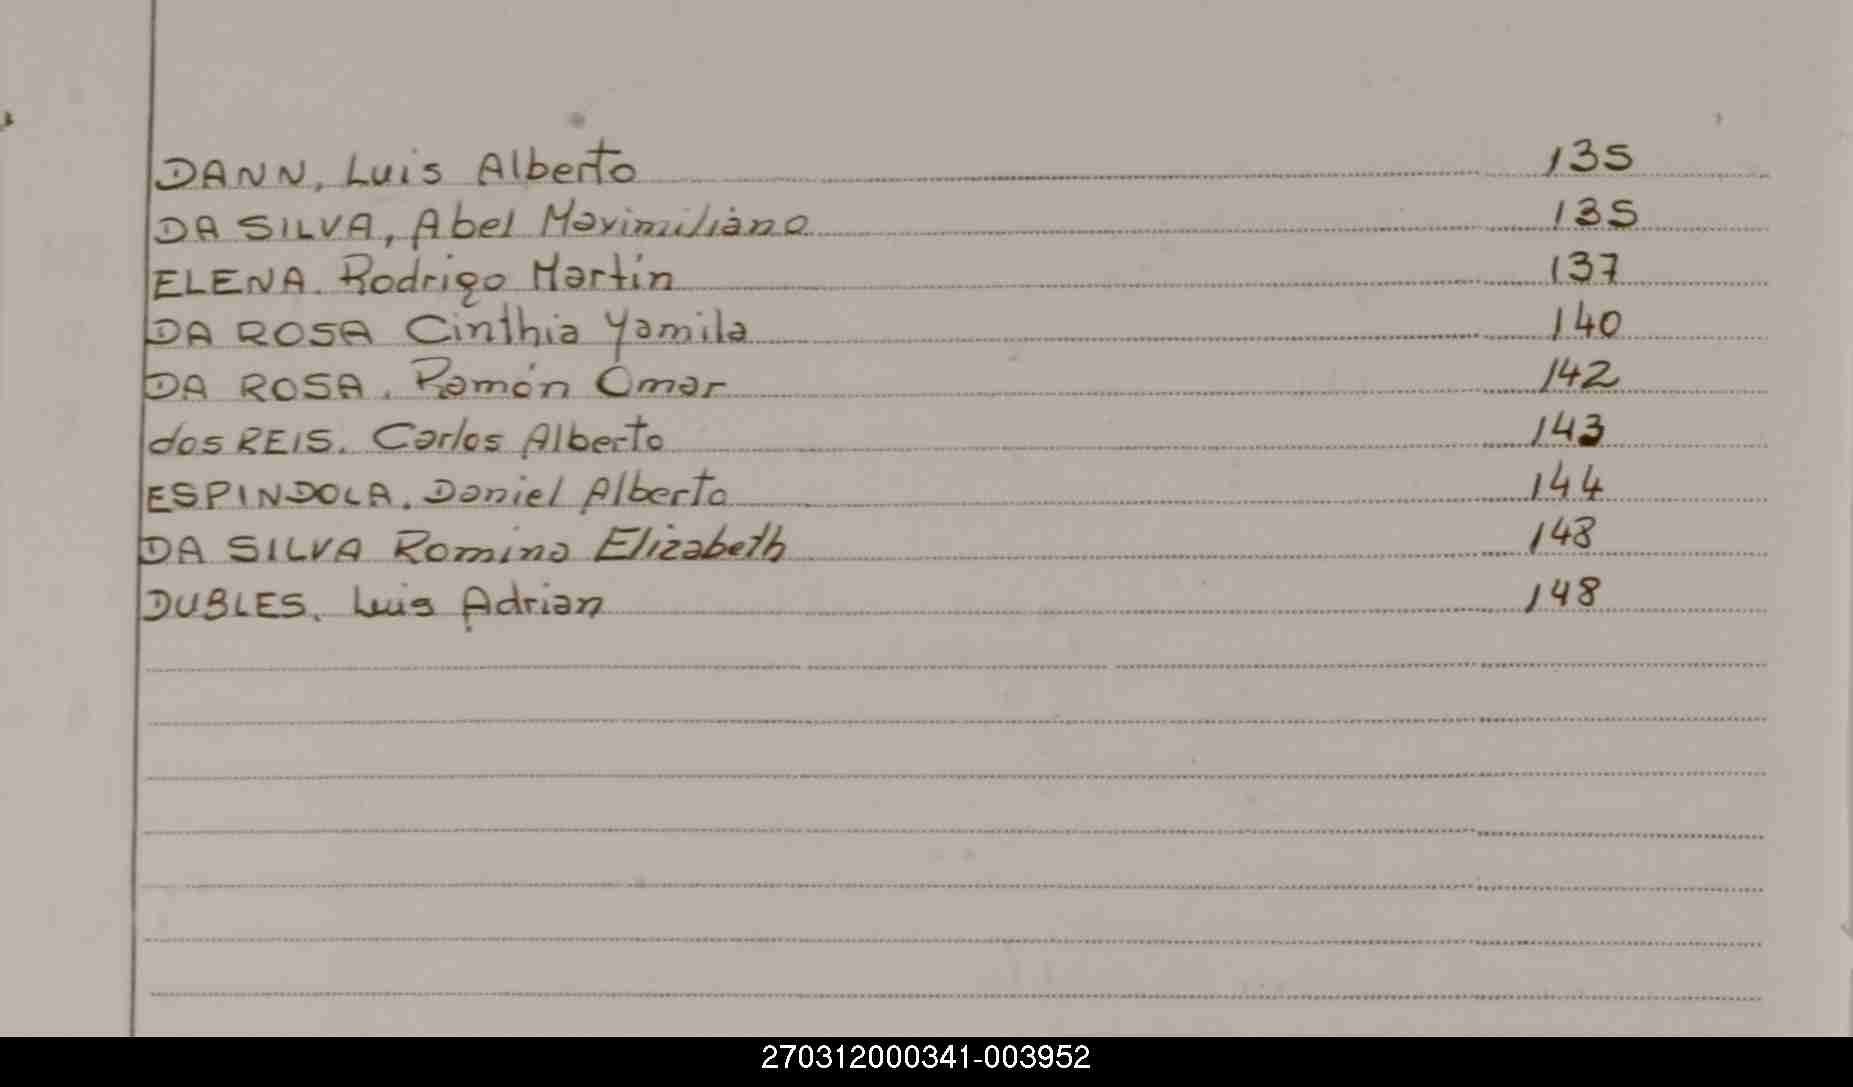 DANN, Luis Alberto 135
DA SILVA, Abel Maximiliano 135
ELENA. Rodrigo Martin 137
DA ROSA Cinthia Yamila 140
DA ROSA. Ramón Omar 142
dos REIS. Carlos Alberto 143
ESPINDOLA. Daniel Alberto 144
DA SILVA Romina Elizabeth 148
DUBLES. Luis Adrian 148
270312000341-003952